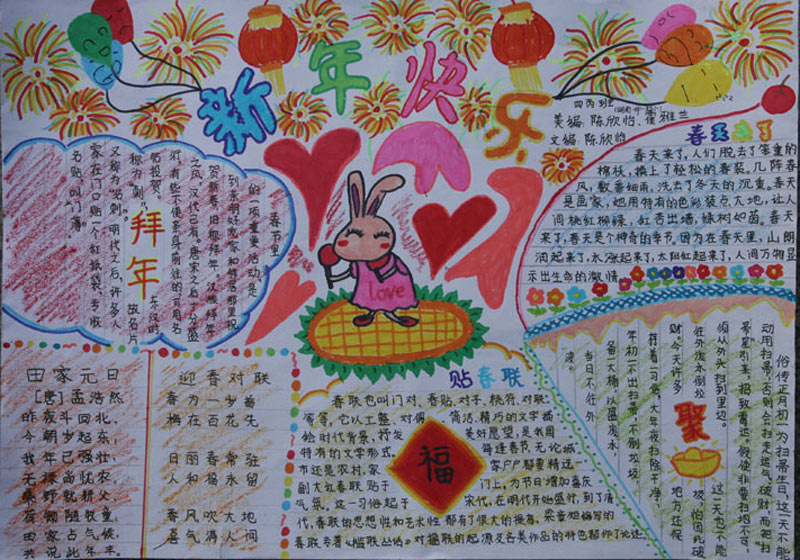 新年快乐
四丙班
美编:陈欣怡、崔雅兰
文编:陈欣怡
春天来了
春天来了,人们脱去了笨重的
棉袄,换上了轻松的春装。几阵春
风,数番细雨,洗去了冬天的沉重。春天
是画家,她用特有的色彩装点大地,让人
间桃红柳绿,红杏出墙,蝶树如茵。春天
来了,春天是个神奇的季节。因为在春天里,山朗
润起来了,水涨起来了,太阳红起来了,人间万物显
示出生命的激情。
拜年
春节里
的一项重要活动,是
到亲朋好友家和邻居那里祝
贺新春,旧称拜年。汉族拜年
之风,汉代已有。唐宋之后十分盛
行,有些不便亲身前往的,可用名
帖投贺。
东汉时
称为“刺”,
故名片
又称为“名刺”。明代之后,许多人
家在门口贴一个红纸袋,专收
名帖,叫“门簿”。
love
田家元日
[唐]孟浩然
昨夜斗回北,
今朝岁起东;
我年已强壮,
无禄尚忧农。
桑野就耕父,
荷锄随牧童;
田家占气候,
共说此年丰。
迎春对联
春为一岁首
梅在百花先
日丽春常驻
人和福永留
春风吹大地
喜气满人间
贴春联
春联也叫门对、春贴、对手、桃符、对联
等等,它以工整、对偶、简洁、精巧的文字描
绘时代背景,抒发
美好愿望,是我国
特有的文学形式。
每逢春节,无论城
市还是农村,家
家户户都要精选一
副大红春联贴于
门上,为节日增加喜庆
气氛。这一习俗起于
宋代,在明代开始盛行,到了清
代,春联的思想性和艺术性都有了很大的提高,梁章矩编写的
春联专著《槛联丛话》对楹联的起源及各类作品的特色都作了论述。
福
聚财
俗传正月初一为扫帚生日,这一天不能
动用扫帚,否则会扫走运气、破财,而把
扫帚星引来,招致霉运。假使非要扫地不可,
须从外头扫到里边。
这一天也不能
往外泼水倒垃
圾,怕因此破
财。今天许多
地方还保
存着一习俗,大年夜扫除干净,
年初一不出扫帚,不倒垃圾,
备一大桶,以盛废水,
当日不往外
泼。